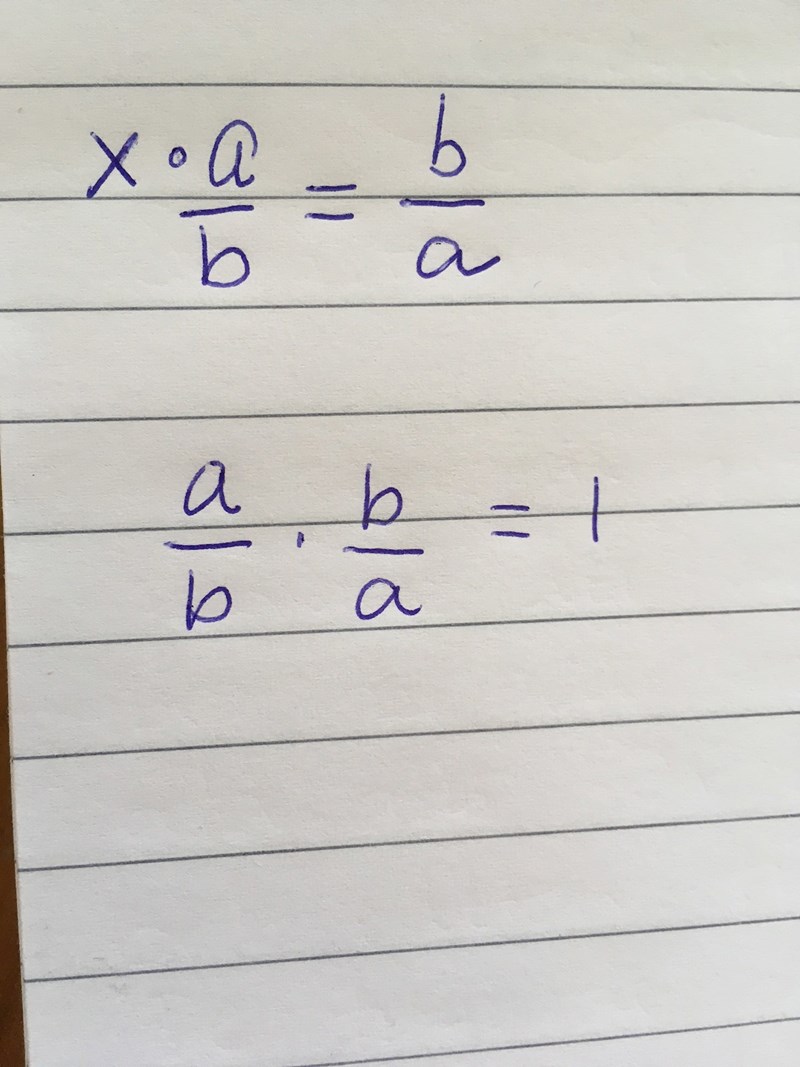 x · a/b = b/a
a/b · b/a = 1